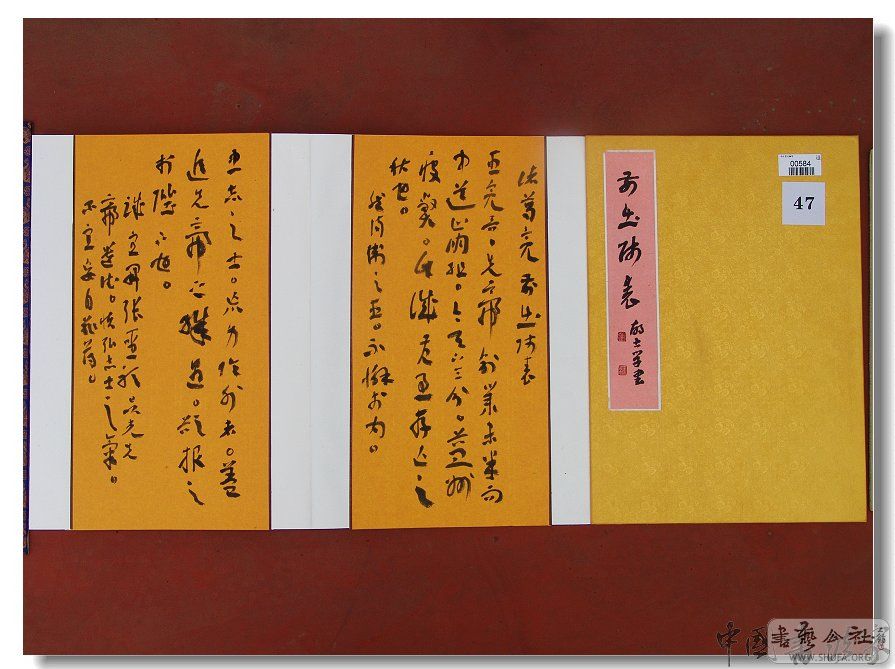 00584
47
前出師表
學書
諸葛亮前出師表
臣亮言。先帝創業未半而
中道崩殂。今天下三分。益州
疲弊。此誠危急存亡之
秋也。
然侍衛之臣。不懈於內。
忠志之士。忘身於外者。蓋
追先帝之殊遇。欲報之
於陛下也。
誠宜開張聖聽以光先
帝遺德。恢弘志士之氣。
不宜妄自菲薄。
中国書藝公社
WWW.SHUFA.ORG